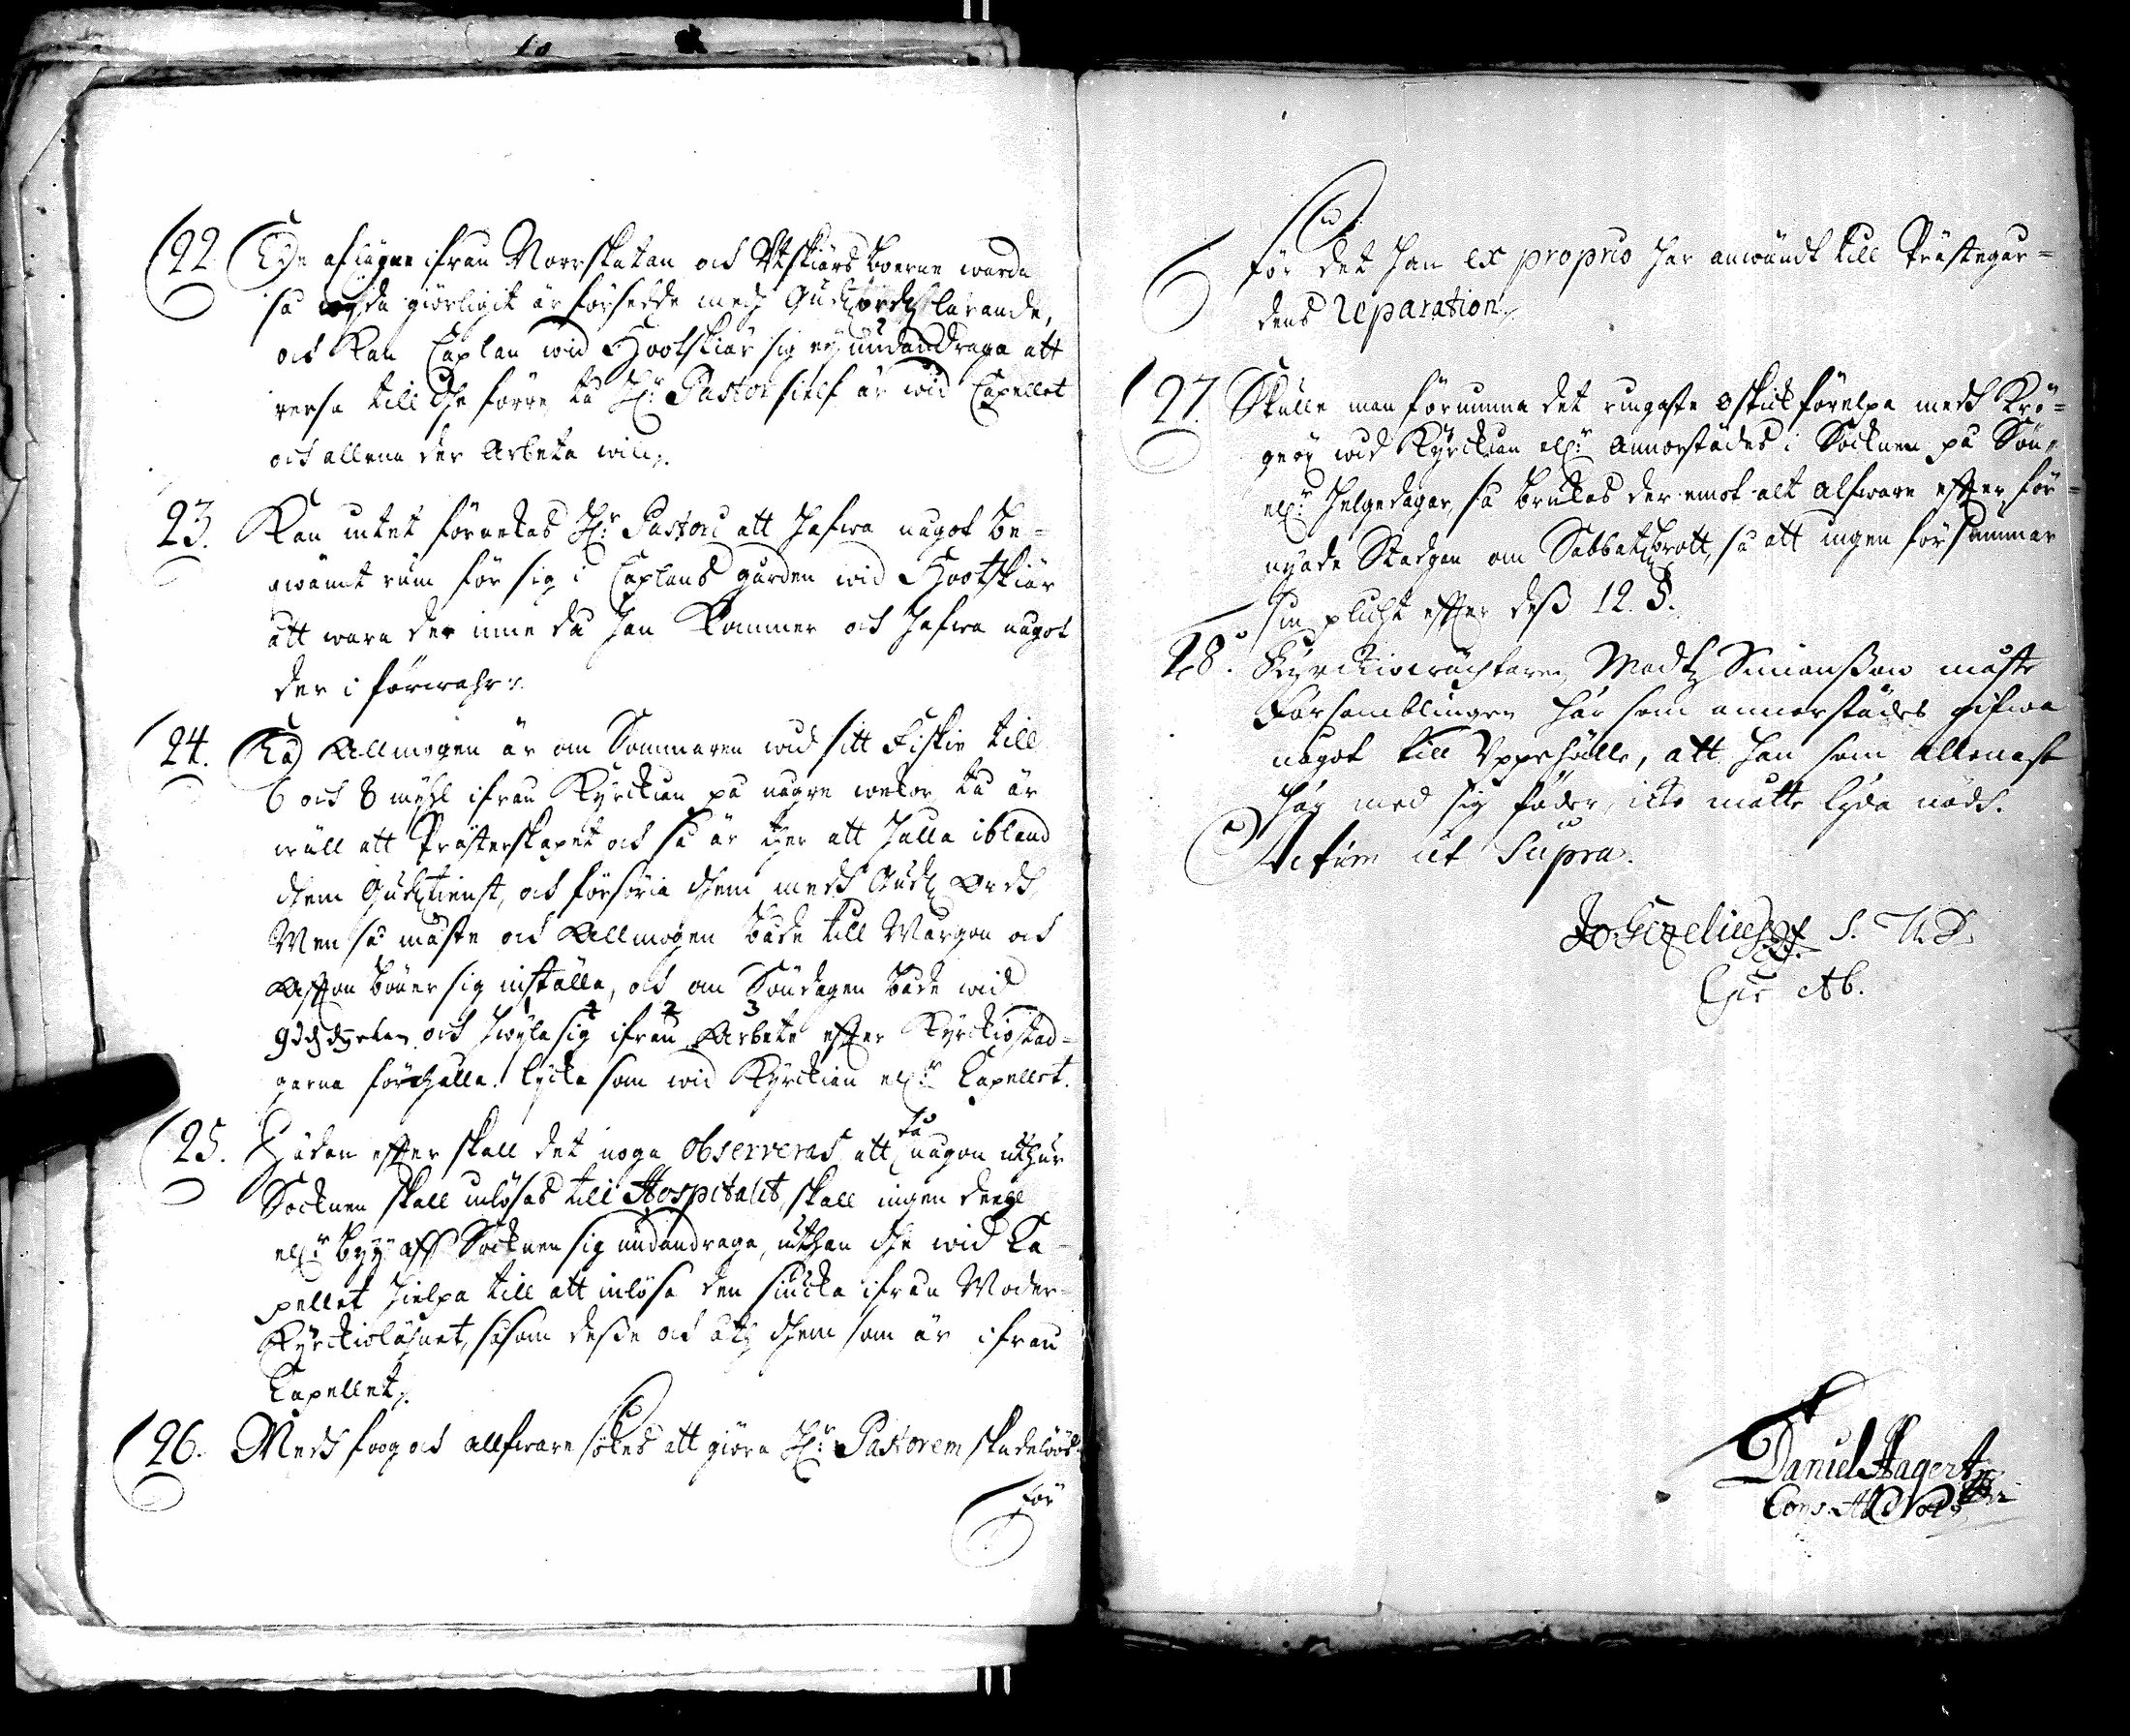 22. The aflägne ifrån Norrskatan och Utskiärs boerne warda
så ofta giörligit är försedde medh Gudz ordz lärande,
och kan Caplan wid Hootskiär sig ey undandraga att
reesa till the förre tå H:r Pastor sielf är wid Capellet
och allena der Arbeta will.
23. Kan intet förnekas H:r Pastori att hafwa något be-
qwämt rum för sig i Caplans gården wid Hootskiär
att wara der inne då han kommer och hafwa något
der i förwahr.
24. Tå Allmogen är om Sommaren wid sitt Fiskie till
6 och 8 myhl ifrån Kyrckian på någre wekor tå är
wäll att Prästerskapet och så är ther att halla ibland
them Gudztienst, och försöria them medh Gudz Ordh
Men så måste och Allmogen både till Morgon och
Affton böner sig inställa, och om Söndagen både wid
gudzdyrckan och hwyla sig ifrån Arbete effter Kyrckiostad-
garna förhålla lycka som wid Kyrckian ell:r Capellet.
25. Hädan effter skall det noga observeras att tå någon uthur
Socknen skall inlösas till Hospitalet, skall ingen deehl
ell:r byy aff Socknen sig undandraga, uthan the wid Ca-
pellet hielpa till att inlösa den siucka ifrån Moder-
Kyrckiolähnet, såsom desse och åth them som är ifrån
Capellet.
26. Medh foog och allfware sökes att giöra H:r Pastorem skadelöös
För
För det han ex proprio har anwändt till Prästegår-
dens reparation.
27. Skulle man förnimma det ringaste oskick förelpa medh Krö-
gery wid Kyrckian ell:r annorstädes i Socknen på Sön-
ell:r helgedagar, så brukas der emot alt alfware effter för-
nyade Stadgan om Sabbatzbrott, så att ingen försummar
sin plicht effter dess 12. §.
28. Kyrckiowächtaren Madtz Simonsson måste
Församblingen här som annorstädes gifwa
något till Uppehälle, att han som allenast
har med sig föder, icke måtte lyda nödh.
Actum ut Supra.
Jo Gezelius S. Th. D.
Epis Ab.
Daniel Hagert
Cons. Ab. Not:s